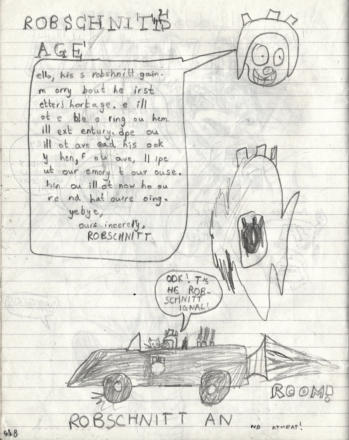 ROBSCHNITT'S
AGE
ello, his s robshnitt gain.
m orry bout he irst
etters hortage. e ill
ot e ble o ring ou hem
ill ext entury. ope ou
ill ot ave ead his ook
y hen, f ou ave, ll ipe
ut our emory t our ouse.
hen ou ill ot now ho ou
re nd hat oure oing.
yebye,
ours incerely,
ROBSCHNITT
OOK! T'S
HE ROB-
SCHNITT
IGNAL!
ROOM!
ROBSCHNITT AN